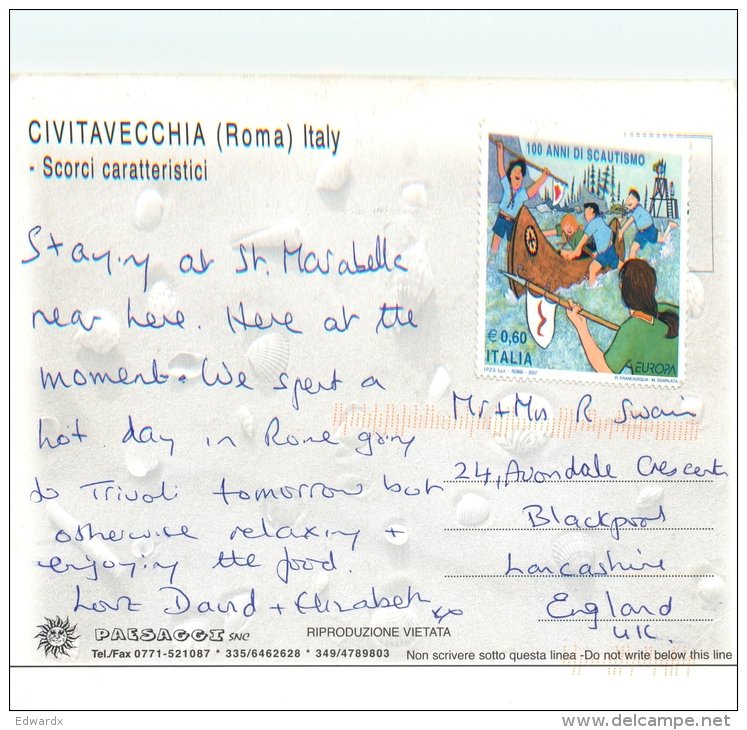 CIVITAVECCHIA (Roma) Italy
- Scorci caratteristici
100 ANNI DI SCAUTISMO
€ 0,60
ITALIA
EUROPA
I.P.Z.S. S.p.A. - ROMA - 2007
Staying at St. Marabelle
near here. Here at the
moment. We spent a
hot day in Rome going
to Trivoli tomorrow but
otherwise relaxing +
enjoying the food.
Love David + Elizabeth xx
Mr + Mrs R Swain
24, Avondale Crescent
Blackpool
Lancashire
England
UK.
PAESAGGI SNC
RIPRODUZIONE VIETATA
Tel./Fax 0771-521087 * 335/6462628 * 349/4789803
Non scrivere sotto questa linea -Do not write below this line
Edwardx